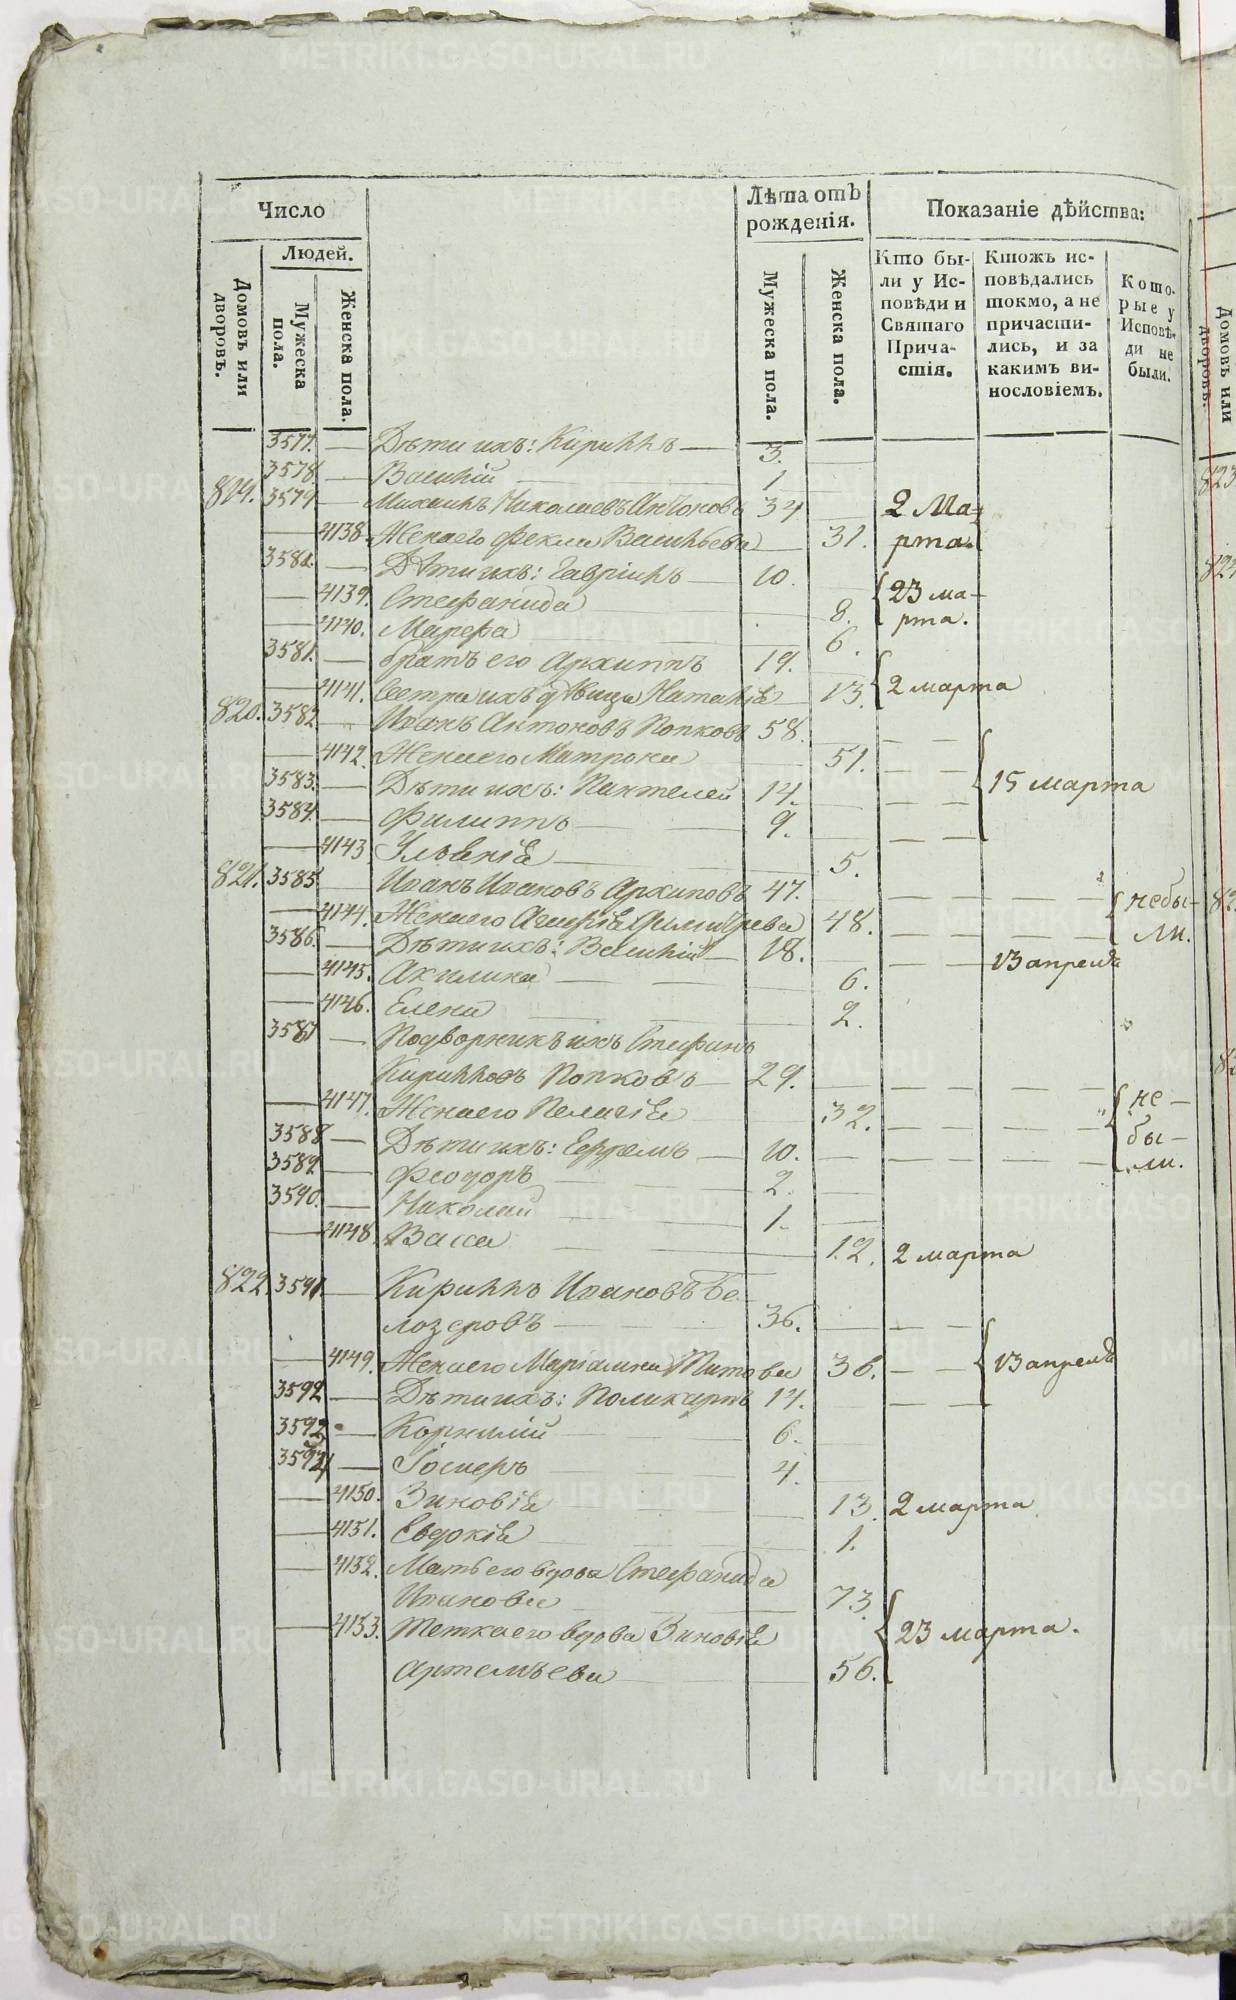 Число
Лѣта отъ рожденія.
Показаніе дѣйства:
Людей.
Домовъ или дворовъ.
Мужеска пола.
Женска пола.
Мужеска пола.
Женска пола.
Кто были у Исповѣди и Святаго Причастія.
Ктожъ исповѣдались токмо, а не причастились, и за какимъ винословіемъ.
Которые у Исповѣди не были.
3577. — Дѣти ихъ: Кириллъ — 3.
3578 — Василій 1
819. 3579 — Михаилъ Николаевъ Антоновъ 34 2 Ма-
4138. Жена его Фекла Васильева — 31. рта.
3580. — Дѣти ихъ: Гавріилъ — 10.
4139. Стефанида 8. 23 ма-
4140. Марфа 6. рта.
3581. — братъ его Архиппъ 19.
4141. Сестра ихъ дѣвица Наталія 13. 2 марта
820. 3582 — Иванъ Антоновъ Попковъ 58.
4142. Жена его Матрона 51.
3583. — Дѣти ихъ: Пантелей 14. 15 марта
3584. — Филиппъ 9.
4143 Ульянія 5.
821. 3585 — Иванъ Ивановъ Архиповъ 47. небы-
4144. Жена его Агафія Димитрева 48. ли.
3586. — Дѣти ихъ: Василій — 18. 13 апреля
4145. Акилина 6.
4146. Елена 2.
3587 — Подворникъ ихъ Стефанъ
Кирилловъ Попковъ — 29.
4147. Жена его Пелагія 32. не-
3588 — Дѣти ихъ: Ефремъ — 10. бы-
3589 — Феодоръ 2. ли.
3590. — Николай 1.
4148. Васса 12. 2 марта
822. 3591 — Кириллъ Ивановъ Бе-
лозеровъ 36.
4149. Жена его Маріамна Титова 36. 13 апреля
3592 — Дѣти ихъ: Поликарпъ 14.
3593 — Корнилій 6.
3594 — Іосифъ 4.
4150. Зиновія 13. 2 марта
4151. Евдокія 1.
4152. Мать его вдова Стефанида
Иванова 73.
4153. Тетка его вдова Зиновія 23 марта.
Артемьева 56.